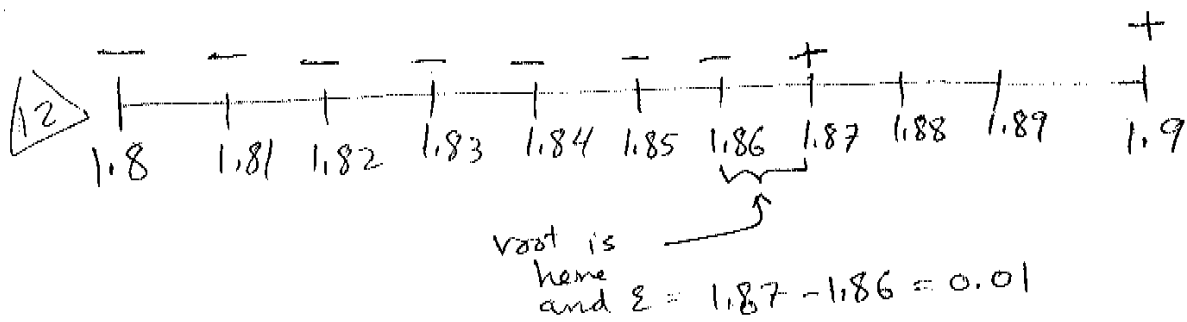 − − − − − − − + +
12
1.8 1.81 1.82 1.83 1.84 1.85 1.86 1.87 1.88 1.89 1.9
root is
here
and ε = 1.87 - 1.86 = 0.01